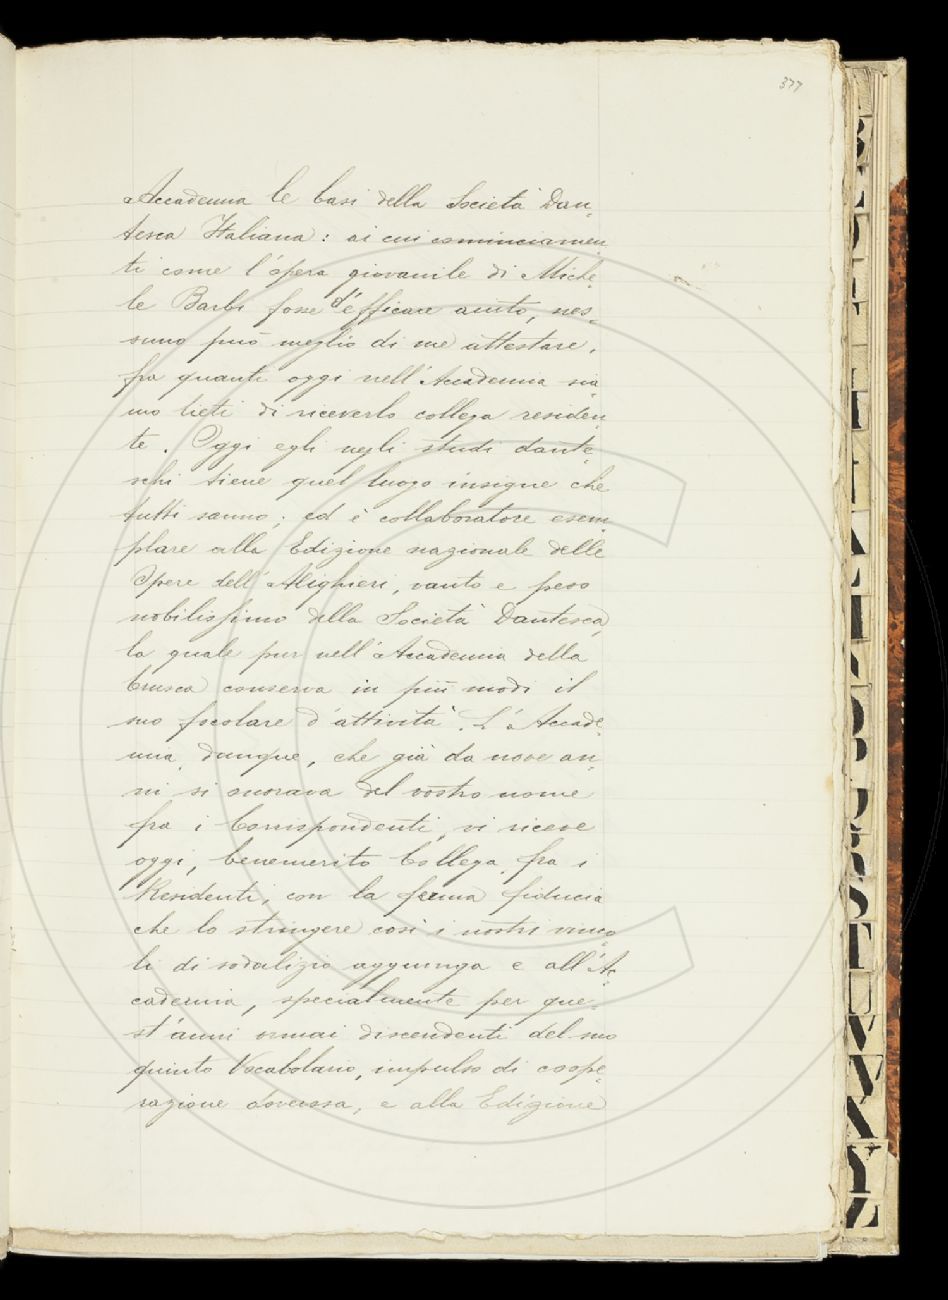 377
Accademia le basi della Società Dan-
tesca Italiana: ai cui cominciamen-
ti come l'opera giovanile di Miche-
le Barbi fosse d'efficace aiuto, nes-
suno può meglio di me attestare,
fra quanti oggi nell'Accademia sia-
mo lieti di riceverlo collega residen-
te. Oggi egli negli studi dante-
schi tiene quel luogo insigne che
tutti sanno; ed è collaboratore esem-
plare alla Edizione nazionale delle
Opere dell'Alighieri, vanto e peso
nobilissimo della Società Dantesca,
la quale pur nell'Accademia della
Crusca conserva in più modi il
suo focolare d'attività. L'Accade-
mia, dunque, che già da nove an-
ni si onorava del vostro nome
fra i Corrispondenti, vi riceve
oggi, benemerito Collega, fra i
Residenti, con la ferma fiducia
che lo stringere così i nostri vinco-
li di sodalizio aggiunga e all'Ac-
cademia, specialmente per que-
st'anni ormai discendenti del suo
quinto Vocabolario, impulso di coope-
razione doverosa, e alla Edizione